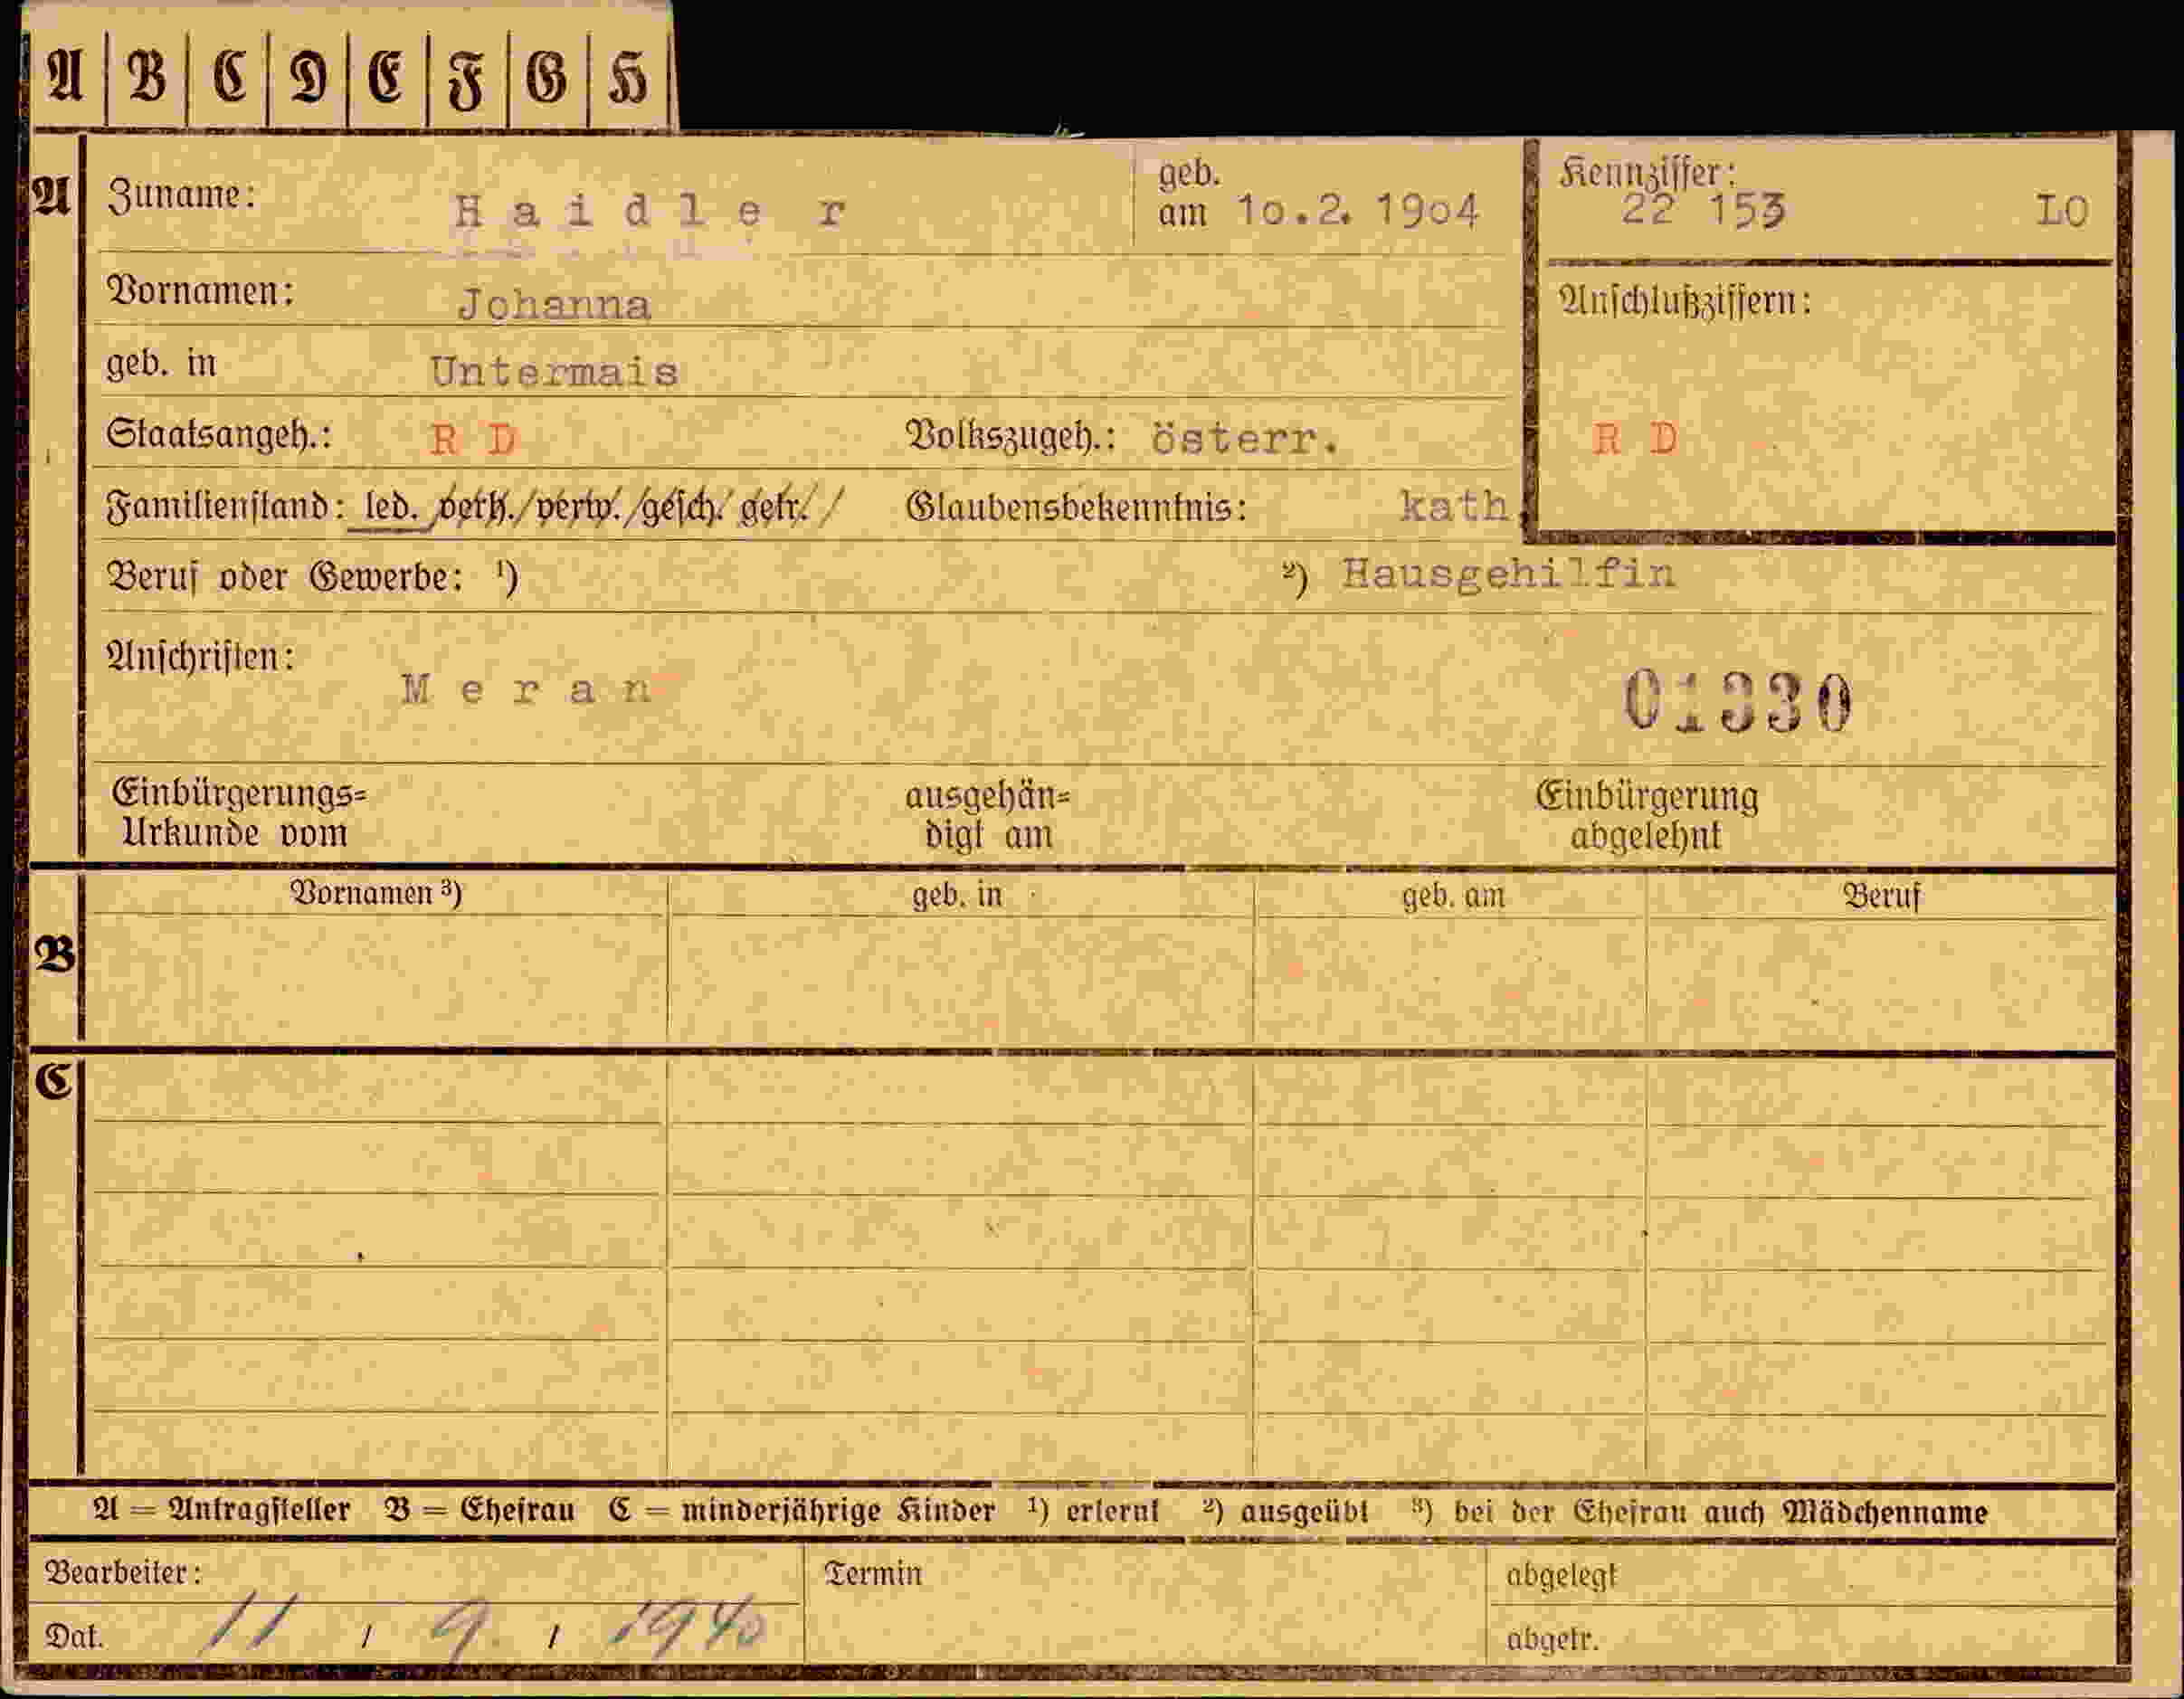 A B C D E F G H
A Zuname: Haidler geb. am 10.2.1904 Kennziffer: 22 153 LO
Vornamen: Johanna Anschlußziffern:
geb. in Untermais
Staatsangeh.: R D Volkszugeh.: österr. R D
Familienstand: led. verh./verw./gesch./getr./ Glaubensbekenntnis: kath.
Beruf oder Gewerbe: ¹) ²) Hausgehilfin
Anschriften: Meran 01330
Einbürgerungs= ausgehän= Einbürgerung
Urkunde vom digt am abgelehnt
Vornamen ³) geb. in geb. am Beruf
B
C
A = Antragsteller B = Ehefrau C = minderjährige Kinder ¹) erlernt ²) ausgeübt ³) bei der Ehefrau auch Mädchenname
Bearbeiter: Termin abgelegt
Dat. 11 / 9. / 1940 abgetr.